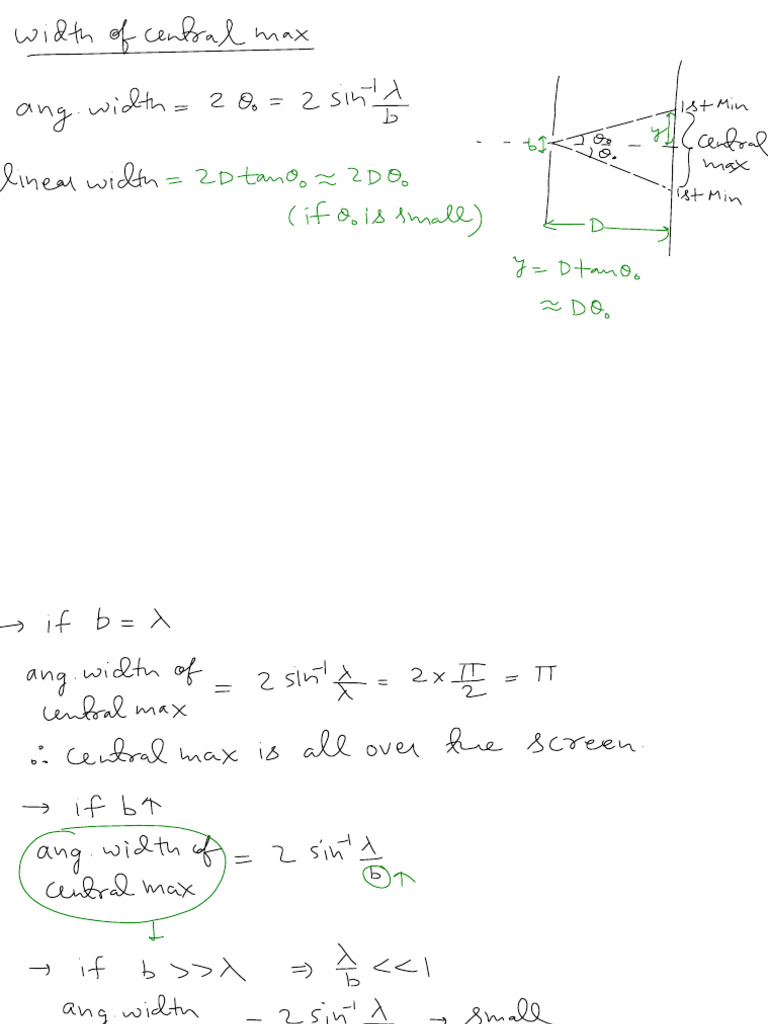 width of central max
ang. width = 2 θ₀ = 2 sin⁻¹ λ/b
linear width = 2D tanθ₀ ≈ 2Dθ₀
(if θ₀ is small)
1st Min
b
θ₀
θ₀
y
central
max
1st Min
D
y = D tanθ₀
≈ Dθ₀
→ if b = λ
ang. width of
central max = 2 sin⁻¹ λ/λ = 2 × π/2 = π
∴ central max is all over the screen.
→ if b↑
ang. width of
central max = 2 sin⁻¹ λ/b ↑
↓
→ if b >> λ ⇒ λ/b << 1
ang. width = 2 sin⁻¹ λ → small